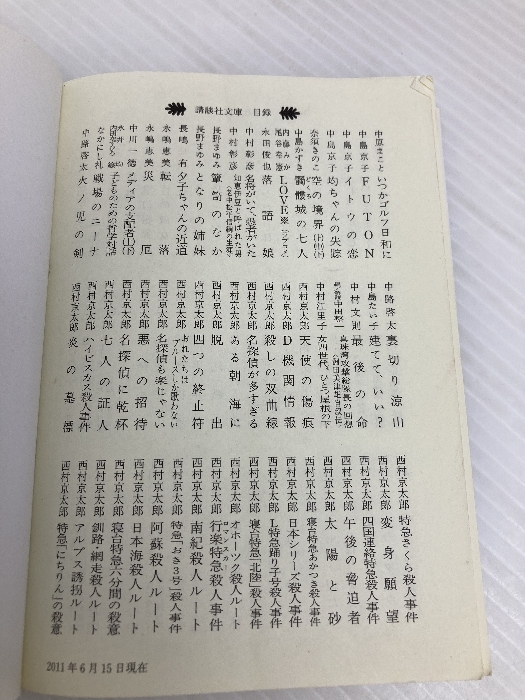 講談社文庫 目録
中原まこと いつかゴルフ日和に
中島京子 FUTON
中島京子 イトウの恋
中島京子 均ちゃんの失踪
奈須きのこ 空の境界(上)(中)(下)
中島かずき 髑髏城の七人
内藤みか LOVE※
尾谷幸憲
永田俊也 落語娘
中村彰彦 名将がいて、愚者がいた
中村彰彦
長野まゆみ 箪笥のなか
長野まゆみ となりの姉妹
長嶋有 夕子ちゃんの近道
永嶋恵美 転落
永嶋恵美 災厄
中川一徳 メディアの支配者(上)(下)
永井均 子どものための哲学対話
内田かずひろ絵
なかにし礼 戦場のニーナ
中路啓太 火ノ児の剣
中路啓太 裏切り涼山
中島たい子 建てて、いい?
中村文則 最後の命
中村江里子 女四世代、ひとつ屋根の下
西村京太郎 天使の傷痕
西村京太郎 D機関情報
西村京太郎 殺しの双曲線
西村京太郎 名探偵が多すぎる
西村京太郎 ある朝海に
西村京太郎 脱出
西村京太郎 四つの終止符
西村京太郎 おれたちはブルースしか歌わない
西村京太郎 名探偵も楽じゃない
西村京太郎 悪への招待
西村京太郎 名探偵に乾杯
西村京太郎 七人の証人
西村京太郎 ハイビスカス殺人事件
西村京太郎 炎の墓標
西村京太郎 特急さくら殺人事件
西村京太郎 変身願望
西村京太郎 四国連絡特急殺人事件
西村京太郎 午後の脅迫者
西村京太郎 太陽と砂
西村京太郎 寝台特急あかつき殺人事件
西村京太郎 日本シリーズ殺人事件
西村京太郎 L特急踊り子号殺人事件
西村京太郎 寝台特急「北陸」殺人事件
西村京太郎 オホーツク殺人ルート
西村京太郎 行楽特急殺人事件
西村京太郎 南紀殺人ルート
西村京太郎 特急「おき3号」殺人事件
西村京太郎 阿蘇殺人ルート
西村京太郎 日本海殺人ルート
西村京太郎 寝台特急六分間の殺意
西村京太郎 釧路・網走殺人ルート
西村京太郎 アルプス誘拐ルート
西村京太郎 特急「にちりん」の殺意
2011年6月15日現在